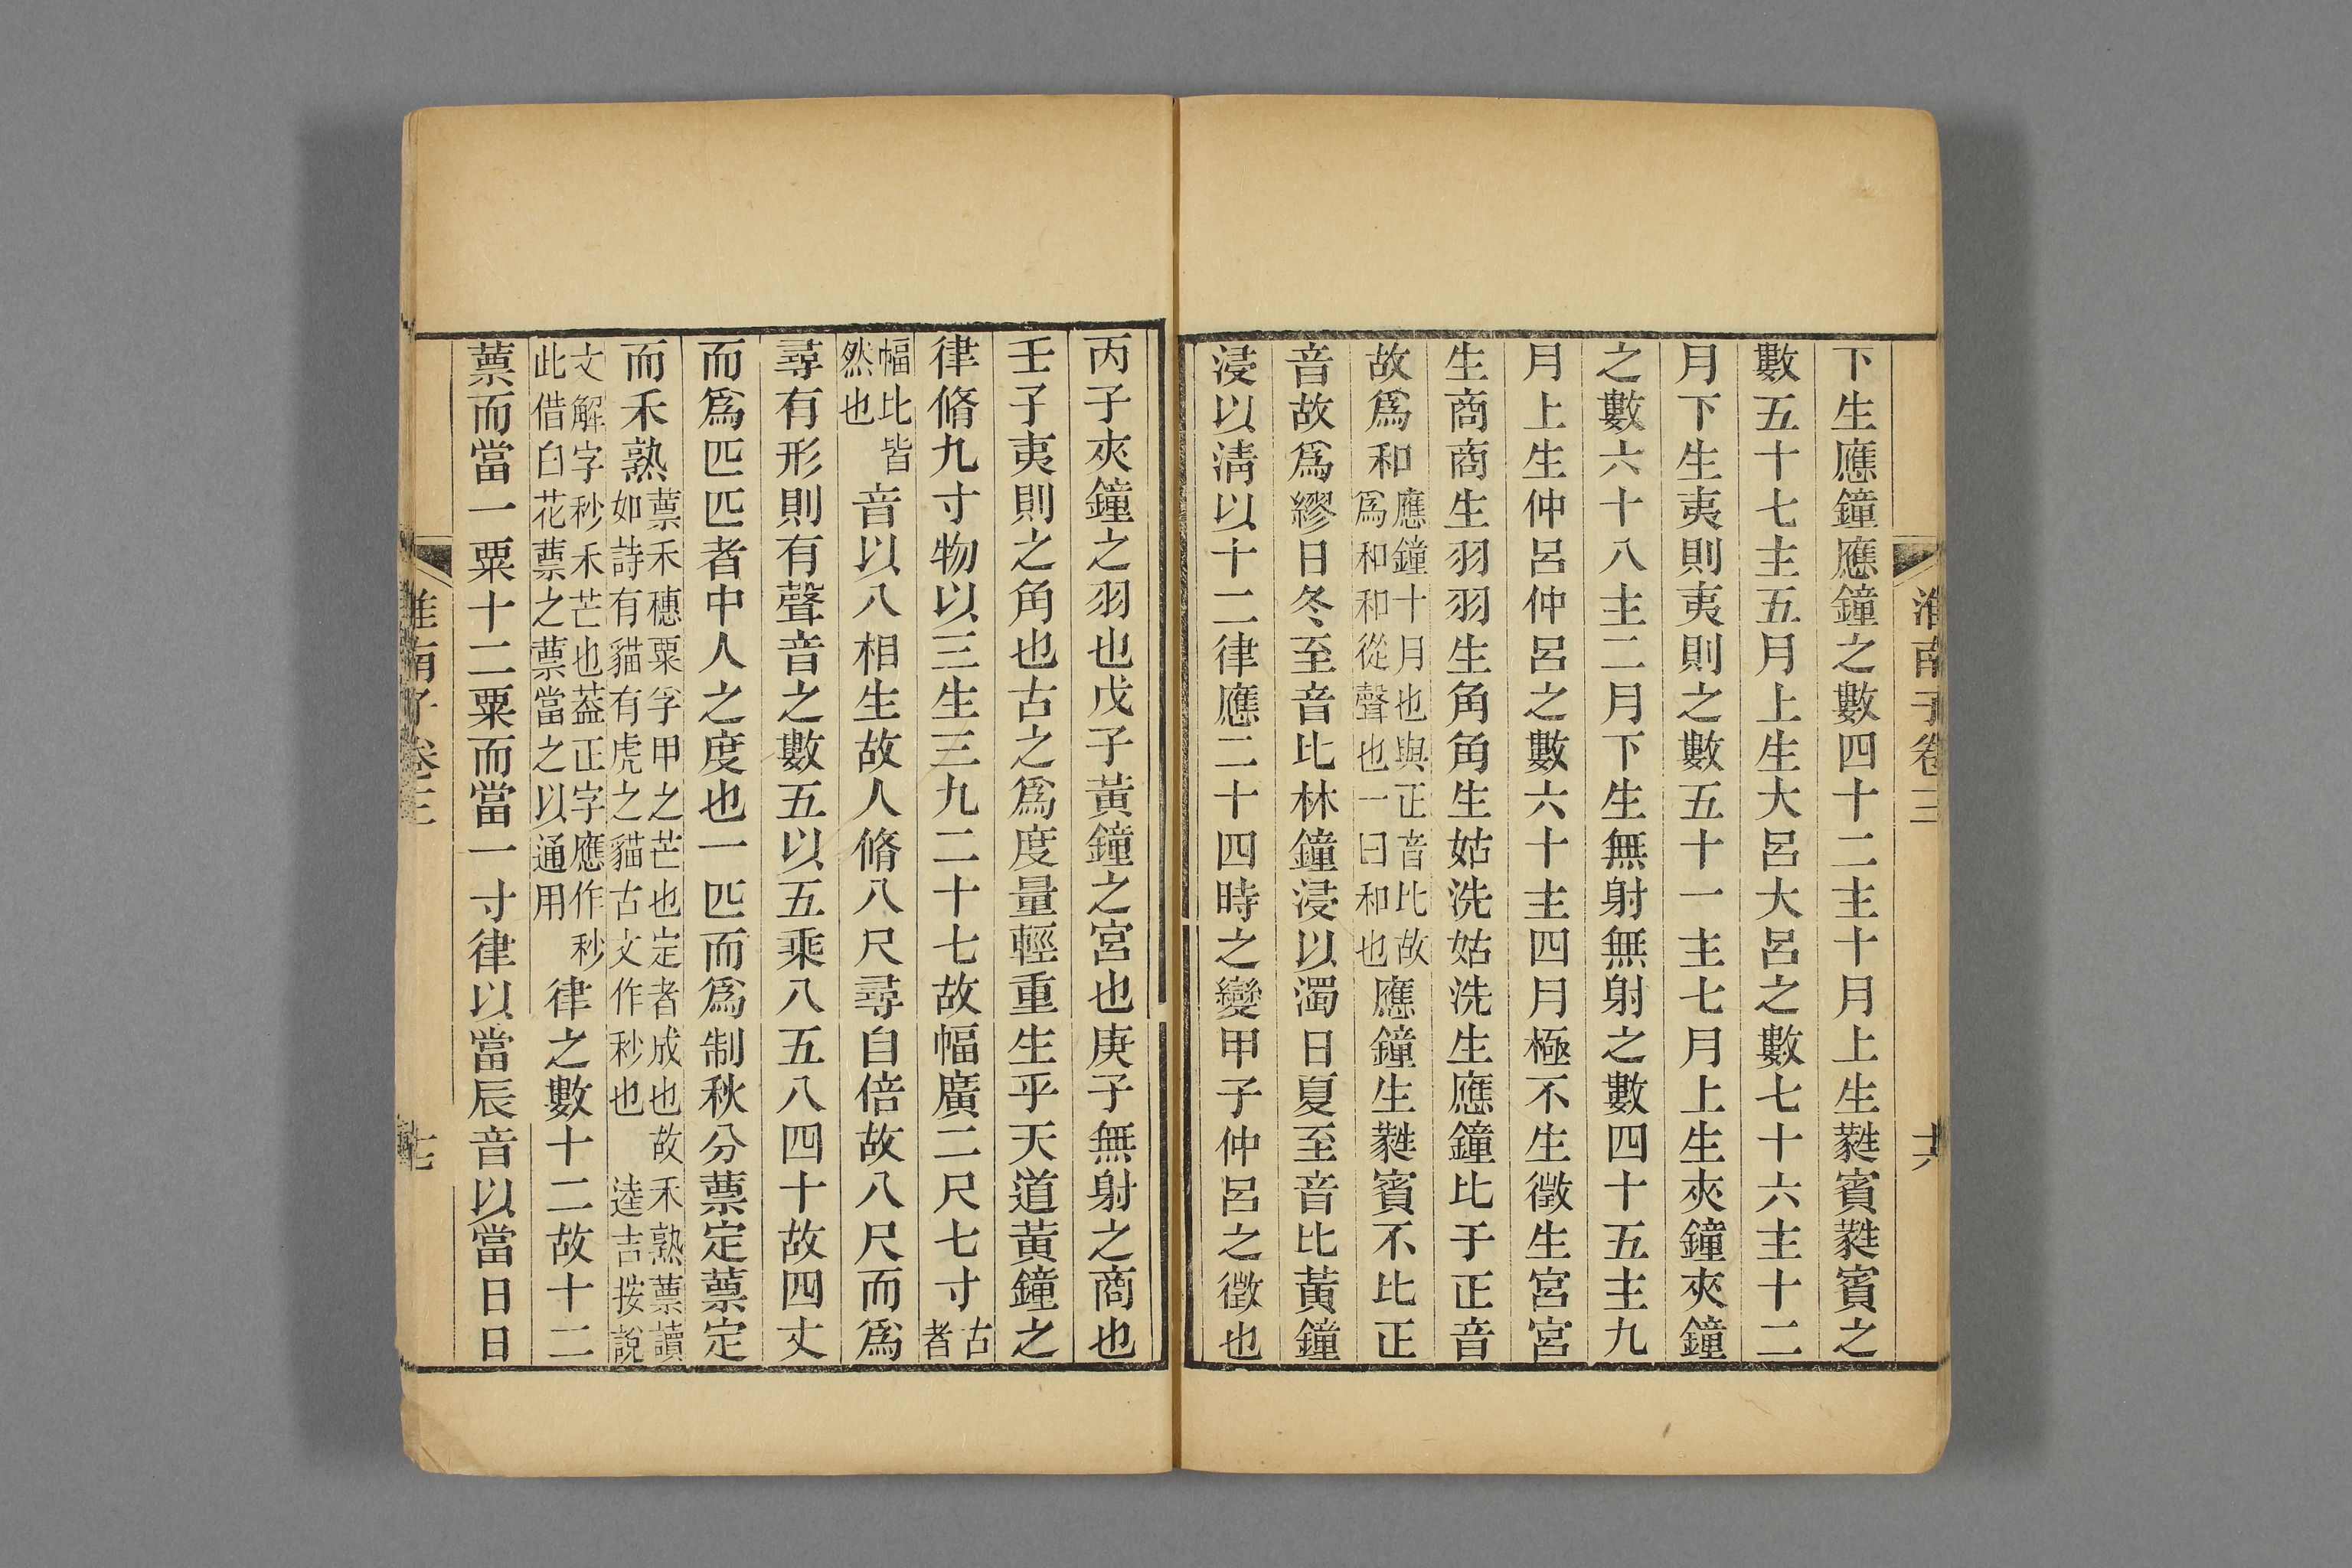 淮南子卷三 十六
下生應鐘應鐘之數四十二主十月上生蕤賓蕤賓之
數五十七主五月上生大呂大呂之數七十六主十二
月下生夷則夷則之數五十一主七月上生夾鐘夾鐘
之數六十八主二月下生無射無射之數四十五主九
月上生仲呂仲呂之數六十主四月極不生徵生宮宮
生商商生羽羽生角角生姑洗姑洗生應鐘比于正音
故爲和應鐘十月也與正音比故爲和和從聲也一曰和也應鐘生蕤賓不比正
音故爲繆日冬至音比林鐘浸以濁日夏至音比黃鐘
浸以淸以十二律應二十四時之變甲子仲呂之徵也
丙子夾鐘之羽也戊子黃鐘之宮也庚子無射之商也
壬子夷則之角也古之爲度量輕重生乎天道黃鐘之
律脩九寸物以三生三九二十七故幅廣二尺七寸古者
幅比皆然也音以八相生故人脩八尺尋自倍故八尺而爲
尋有形則有聲音之數五以五乘八五八四十故四丈
而爲匹匹者中人之度也一匹而爲制秋分蔈定蔈定
而禾熟蔈禾穗粟孚甲之芒也定者成也故禾熟蔈讀如詩有貓有虎之貓古文作秒也逵吉按說
文解字秒禾芒也葢正字應作秒此借臼花蔈之蔈當之以通用律之數十二故十二
蔈而當一粟十二粟而當一寸律以當辰音以當日日
淮南子卷三 十七